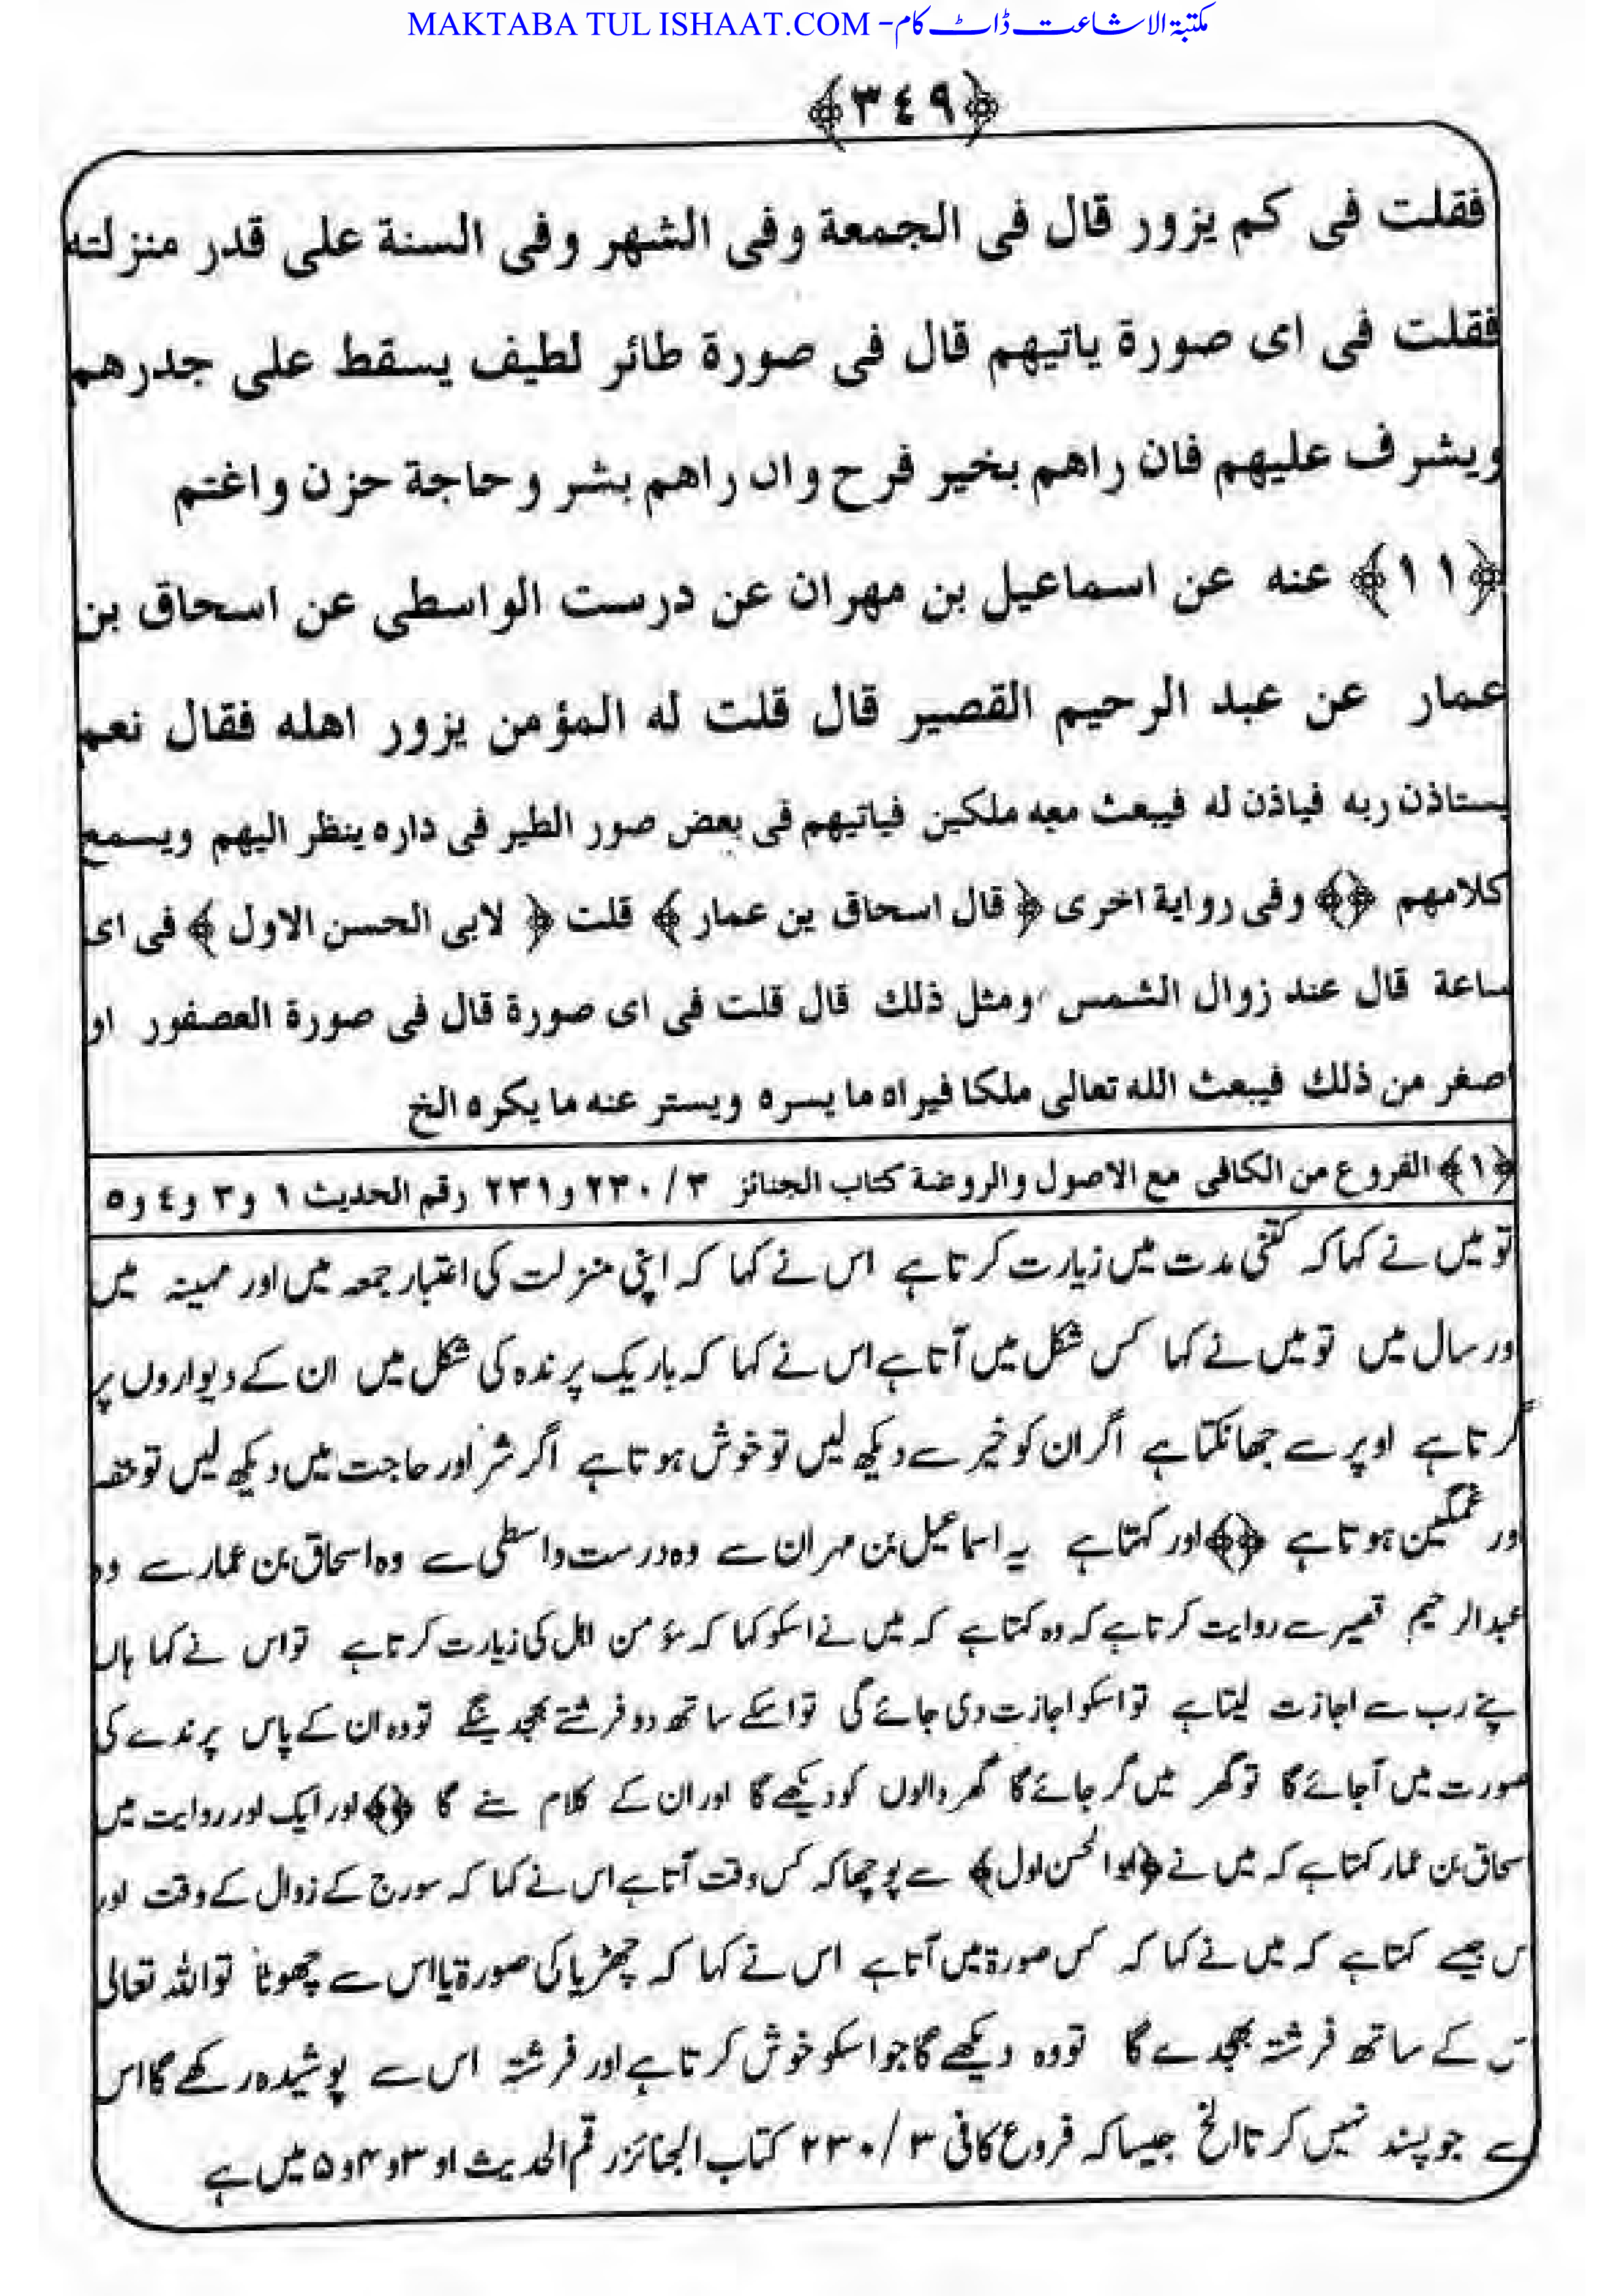 MAKTABA TUL ISHAAT.COM -مكتبۃ الاشاعت ڈاٹ کام
﴿٣٤٩﴾
فقلت فى كم يزور قال فى الجمعة وفى الشهر وفى السنة على قدر منزلته
فقلت فى اى صورة ياتيهم قال فى صورة طائر لطيف يسقط على جدرهم
ويشرف عليهم فان راهم بخير فرح وان راهم بشر وحاجة حزن واغتم
﴿١١﴾ عنه عن اسماعيل بن مهران عن درست الواسطى عن اسحاق بن
عمار عن عبد الرحيم القصير قال قلت له المؤمن يزور اهله فقال نعم
يستاذن ربه فياذن له فيبعث معه ملكين فياتيهم فى بعض صور الطير فى داره ينظر اليهم ويسمع
كلامهم ﴿﴾ وفى رواية اخرى ﴿قال اسحاق بن عمار﴾ قلت ﴿لابى الحسن الاول﴾ فى اى
ساعة قال عند زوال الشمس ومثل ذلك قال قلت فى اى صورة قال فى صورة العصفور او
اصغر من ذلك فيبعث الله تعالى ملكا فيراه ما يسره ويستر عنه ما يكره الخ
﴿١﴾ الفروع من الكافى مع الاصول والروضة كتاب الجنائز ٣/ ٢٣٠ و٢٣١ رقم الحديث ١ و٣ و٤ و٥
تو میں نے کہا کہ کتنی مدت میں زیارت کرتا ہے اس نے کہا کہ اپنی منزلت کی اعتبار جمعہ میں اور مہینہ میں
ور سال میں تو میں نے کہا کس شکل میں آتا ہے اس نے کہا کہ باریک پرندہ کی شکل میں ان کے دیواروں پر
گرتا ہے اوپر سے جھانکتا ہے اگر ان کو خیر سے دیکھ لیں تو خوش ہوتا ہے اگر شر اور حاجت میں دیکھ لیں تو خفہ
ور غمگین ہوتا ہے ﴿﴾ اور کہتا ہے یہ اسماعیل بن مہران سے وہ درست واسطی سے وہ اسحاق بن عمار سے وہ
عبدالرحیم قصیر سے روایت کرتا ہے کہ وہ کہتا ہے کہ میں نے اسکو کہا کہ مؤمن اہل کی زیارت کرتا ہے تو اس نے کہا ہاں
پنے رب سے اجازت لیتا ہے تو اسکو اجازت دی جائے گی تو اسکے ساتھ دو فرشتے بھیجد ینگے تو وہ ان کے پاس پرندے کی
صورت میں آجائے گا تو گھر میں گر جائے گا گھر والوں کو دیکھے گا اور ان کے کلام سنے گا ﴿﴾ اور ایک اور روایت میں
سحاق بن عمار کہتا ہے کہ میں نے ﴿ابو الحسن اول﴾ سے پوچھا کہ کس وقت آتا ہے اس نے کہا کہ سورج کے زوال کے وقت اور
س جیسے کہتا ہے کہ میں نے کہا کہ کس صورۃ میں آتا ہے اس نے کہا کہ چڑیا کی صورۃ یا اس سے چھوٹا تو اللہ تعالی
س کے ساتھ فرشتہ بھیجدے گا تو وہ دیکھے گا جو اسکو خوش کرتا ہے اور فرشتہ اس سے پوشیدہ رکھے گا اس
سے جو پسند نہیں کرتا الخ جیسا کہ فروع کافی ۳/ ۲۳۰ کتاب الجنائز رقم الحدیث ا و ۳ و ۴ و ۵ میں ہے